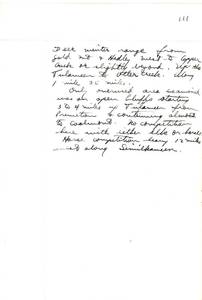 111
Deer winter range from
Gold Mt & Hedley west to Copper
Creek or slightly beyond. Up the
Tulameen to Otter Creek. Way
1 mile
Only area
was on open bluffs starting
3 to 4 miles up Tulameen from
Princeton & continuing almost
to Coalmont. No competition
here with either elk or horse
Horse competition heavy 12 miles
west along Similkameen.